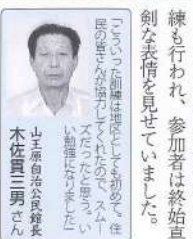 練も行われ、参加者は終始真
剣な表情を見せていました。
「こういった訓練は地区としても初めて。住
民の皆さんが協力してくれたので、スムー
ズだったと思う。い
い勉強になりました」
山王原自治公民館長
木佐貫三男さん